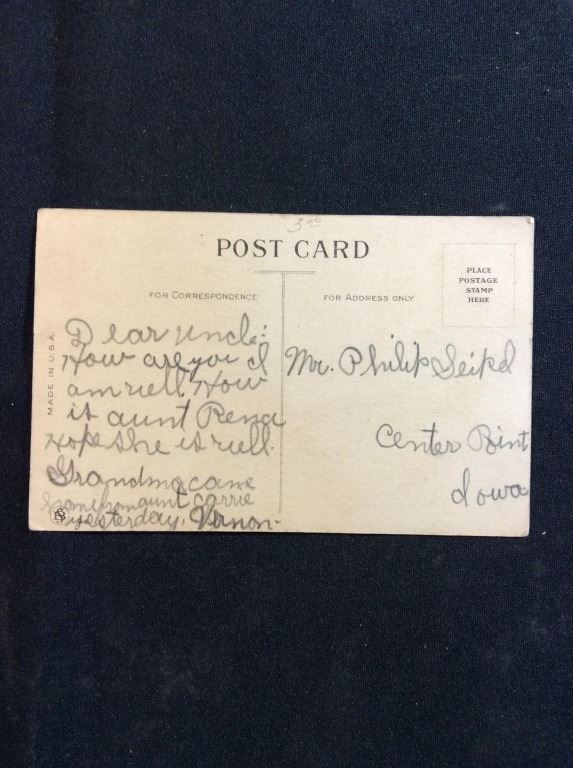 3.00
POST CARD
FOR CORRESPONDENCE
FOR ADDRESS ONLY
PLACE
POSTAGE
STAMP
HERE
MADE IN U.S.A.
Dear uncle:
How are you I
am well. How
is aunt Rena
Hope she is well.
Grandma came
home from aunt Carrie
yesterday. Vernon.
Mr. Philip Seipel
Center Point
Iowa